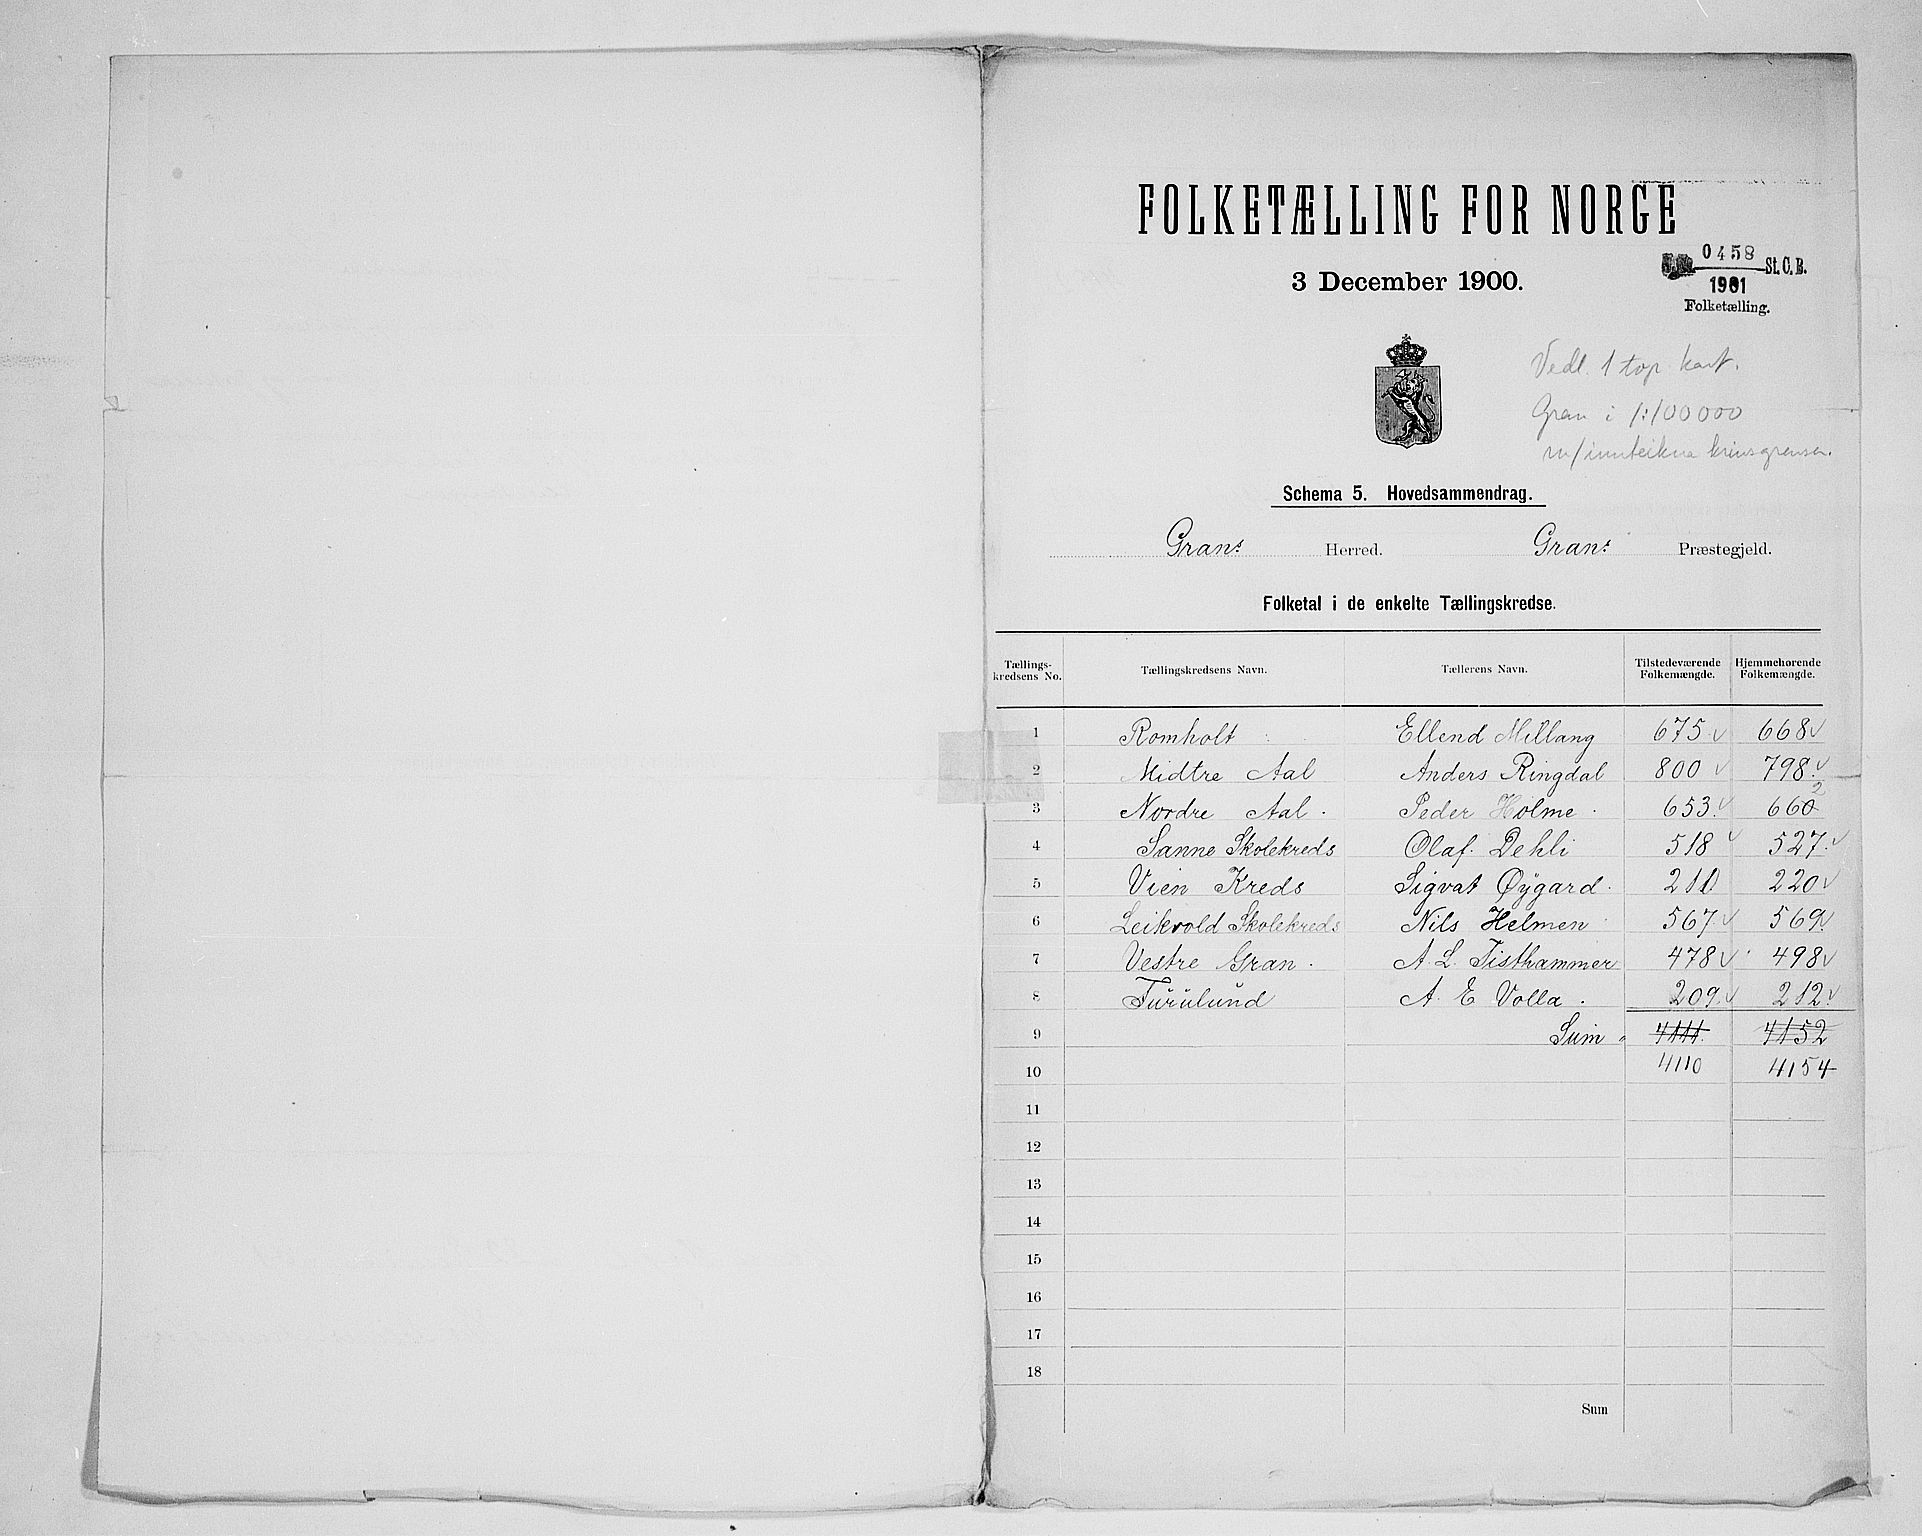 FOLKETÆLLING FOR NORGE
3 December 1900.
0458
St. C. B.
1901
Folketælling.
Vedl. 1 top. kart.
Gran i 1:100 000
m/innteikna krinsgrenser.
Schema 5. Hovedsammendrag.
Grans Herred. Grans Præstegjeld.
Folketal i de enkelte Tællingskredse.
Tællings-kredsens No. Tællingskredsens Navn. Tællerens Navn. Tilstedeværende Folkemængde. Hjemmehørende Folkemængde.
1 Romholt Ellend Millang 675 668
2 Midtre Aal Anders Ringdal 800 798
3 Nordre Aal. Peder Holme 653 660 2
4 Sanne Skolekreds Olaf. Dehli 518 527
5 Vien Kreds Sigvat Øygard. 210 220
6 Leikvold Skolekreds Nils Helmen 567 569
7 Vestre Gran. A. L. Tisthammer 478 498
8 Furulund A. E Volla. 209 212
9 Sum 4111 4152
10 4110 4154
11
12
13
14
15
16
17
18
Sum